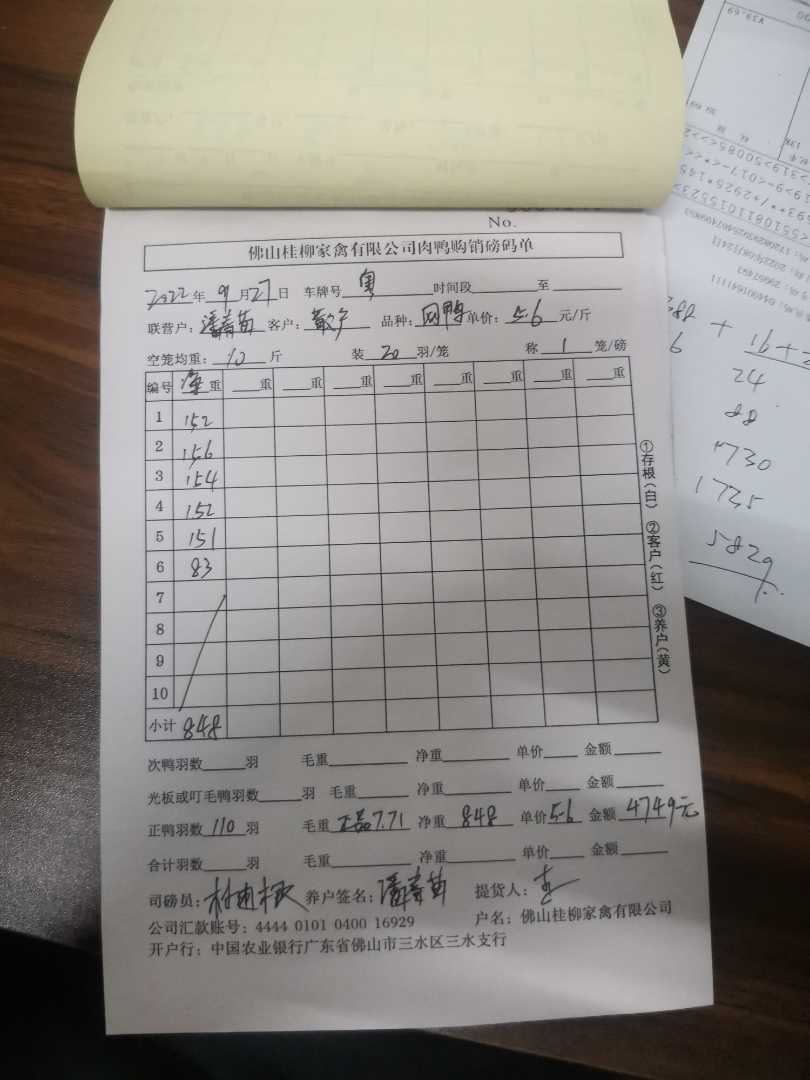 No.
佛山桂柳家禽有限公司肉鸭购销磅码单
2022年9月27日 车牌号 粤 时间段 至
联营户： 客户： 品种： 单价：5.6 元/斤
空笼均重：10 斤 装 20 羽/笼 称 1 笼/磅
编号 净重 重 重 重 重 重 重 重 重
1 152
2 156
3 154
4 152
5 151
6 83
7
8
9
10
小计 848
①存根（白） ②客户（红） ③养户（黄）
次鸭羽数 羽 毛重 净重 单价 金额
光板或叮毛鸭羽数 羽 毛重 净重 单价 金额
正鸭羽数 110 羽 毛重 正品7.71 净重 848 单价5.6 金额 4749元
合计羽数 羽 毛重 净重 单价 金额
司磅员： 养户签名： 提货人：
公司汇款账号：4444 0101 0400 16929 户名：佛山桂柳家禽有限公司
开户行：中国农业银行广东省佛山市三水区三水支行
24
88
1730
1735
5829